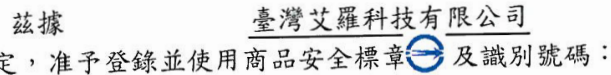 茲據 臺灣艾羅科技有限公司
定，准予登錄並使用商品安全標章 及識別號碼：